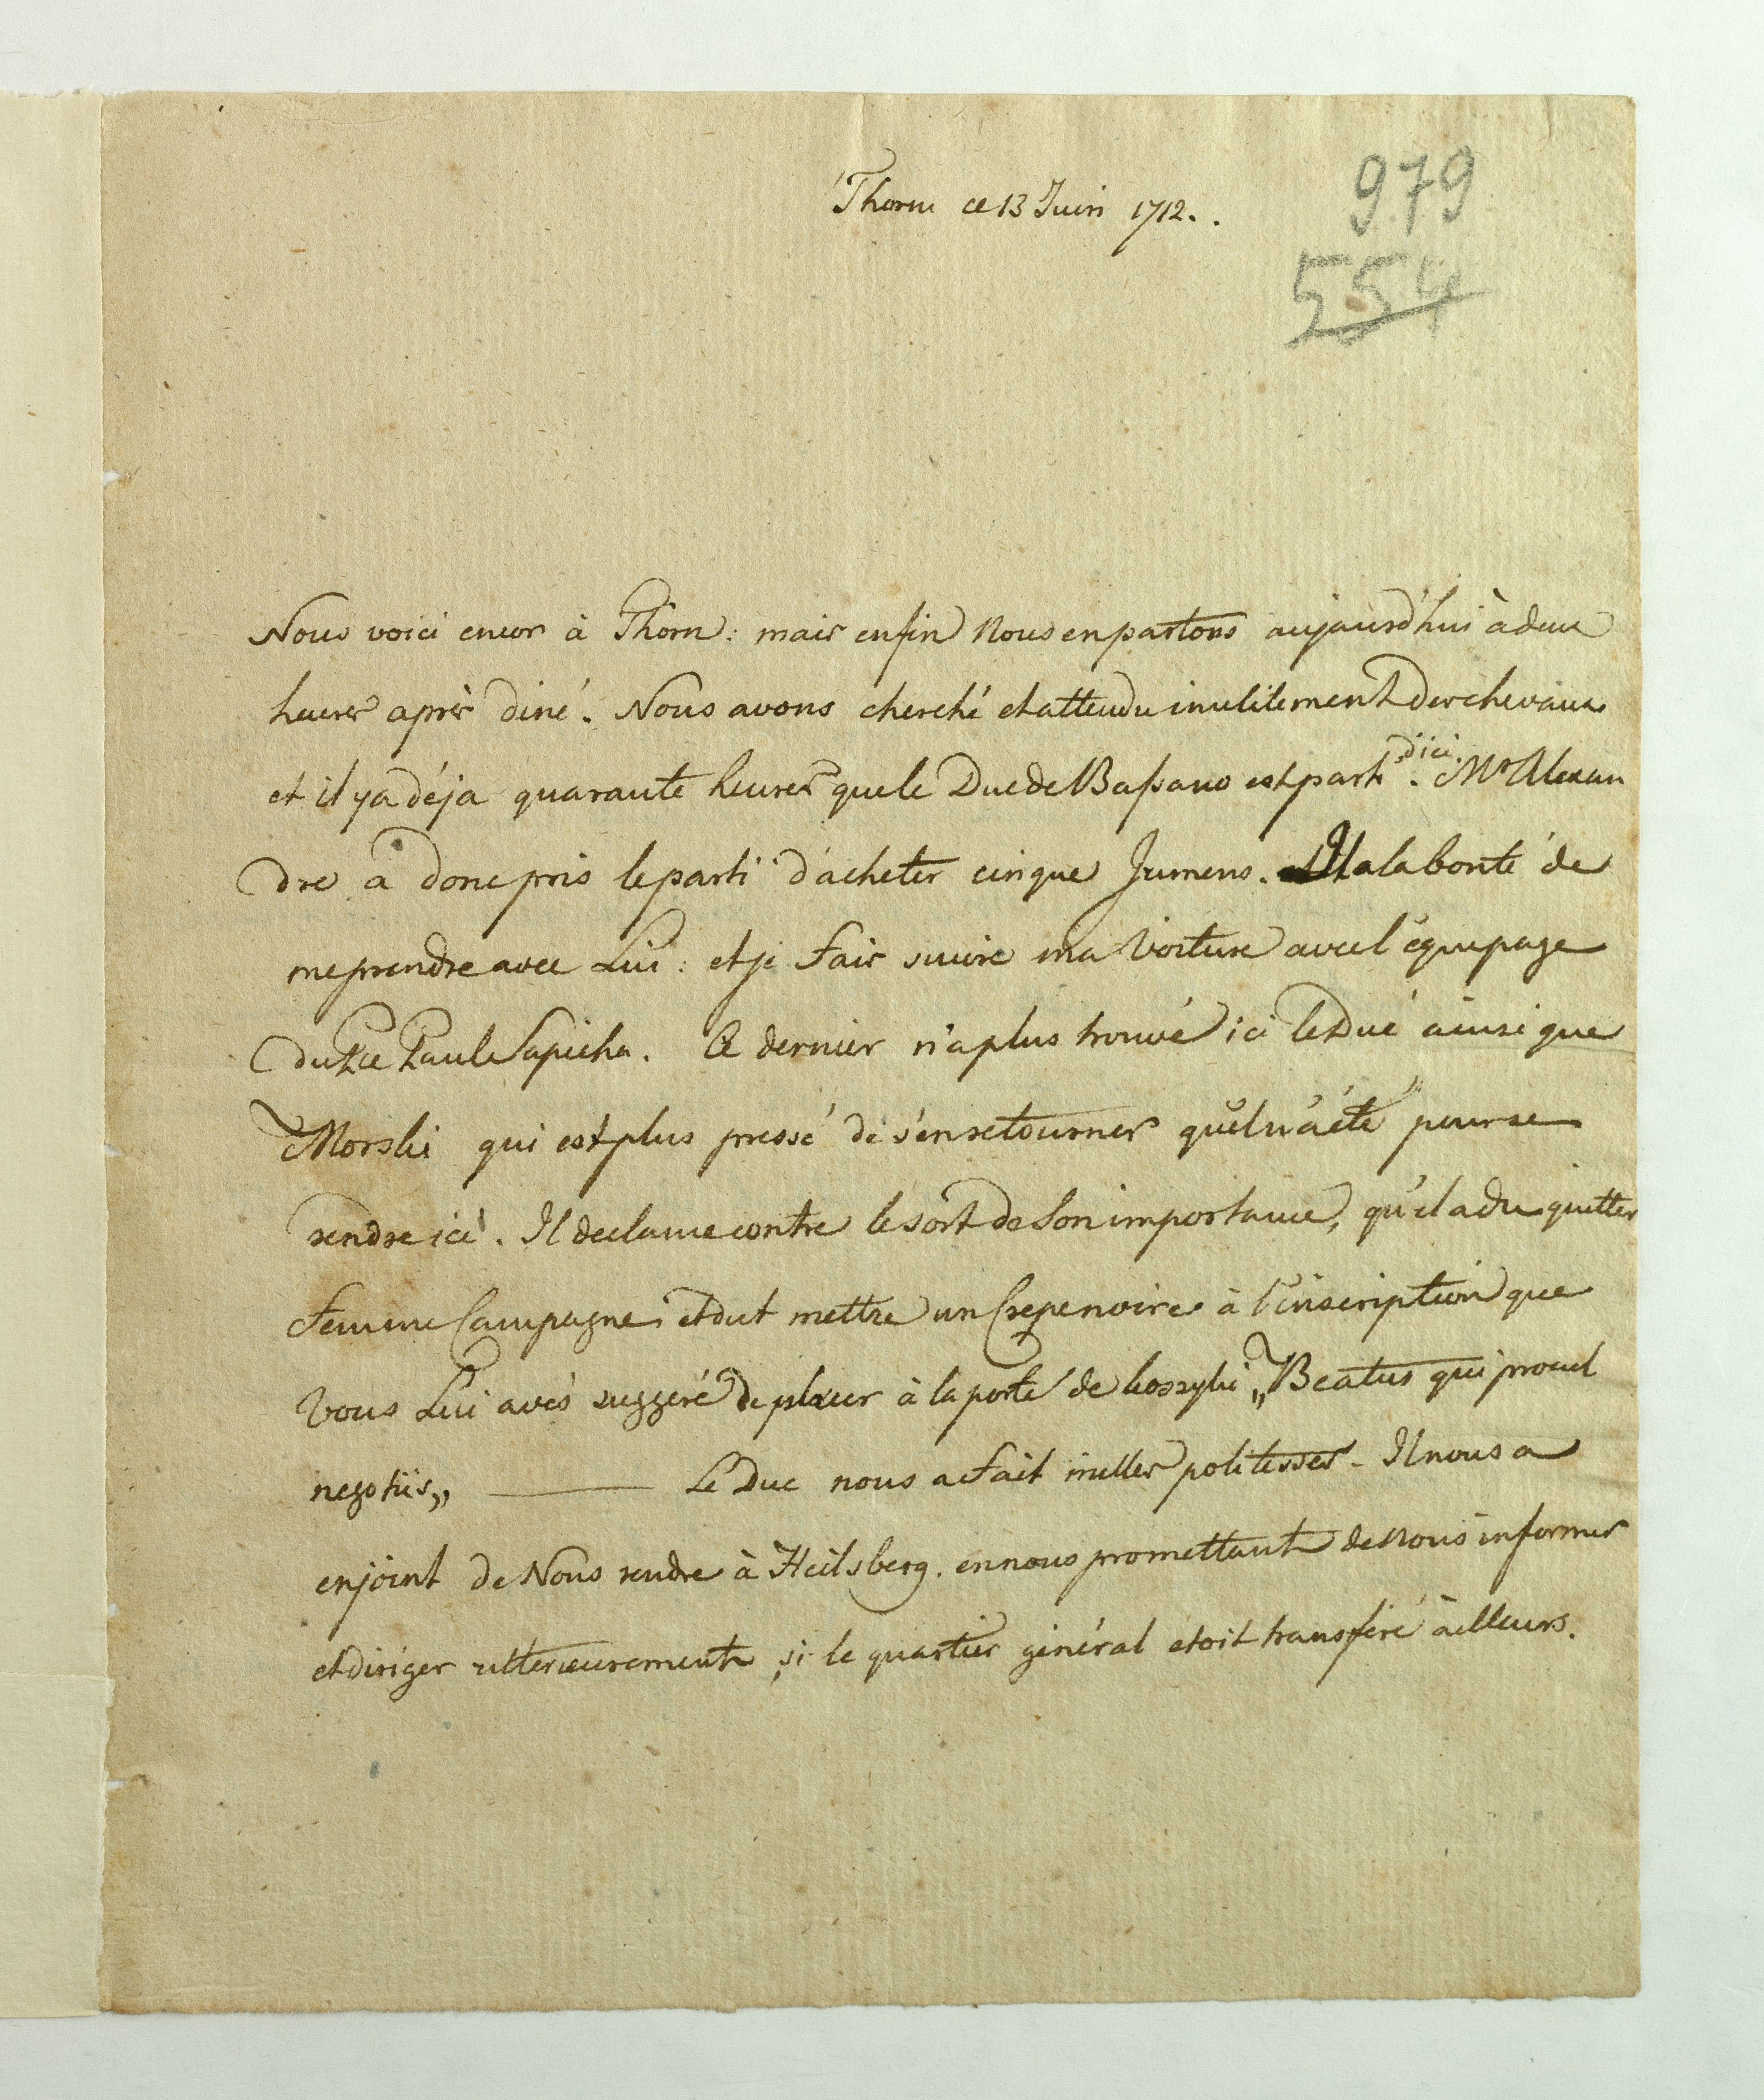 Thorn ce 13 Juin 1712..
979
554
Nous voici encor à Thorn: mais enfin nous en partons aujourd'hui à deux
heures après diné. Nous avons cherché et attendu inutilement des chevaux
et il y a déja quarante heures que le Duc de Bassano est parti d'ici. Mr Alexan
dre a donc pris le parti d'acheter cinque Jumens. Il a la bonté de
me prendre avec Lui: et je fais suivre ma Voiture avec l'équipage
du Pce Paul Sapieha. Ce dernier n'a plus trouvé ici le Duc ainsi que
Morski qui est plus pressé de s'en retourner qu'il n'a été pour se
rendre ici. Il declame contre le sort de son importance, qu'il a du quitter
femme Campagne et dut mettre un Crepe noire à l'inscription que
Vous Lui avés suggeré de placer à la porte de „Beatus qui procul
negotiis„ — Le Duc nous a fait milles politesses - Il nous a
enjoint de Nous rendre à Heilsberg. en nous promettant de nous informer
et diriger ulterieurement, si le quartier général etoit transferé àilleurs.